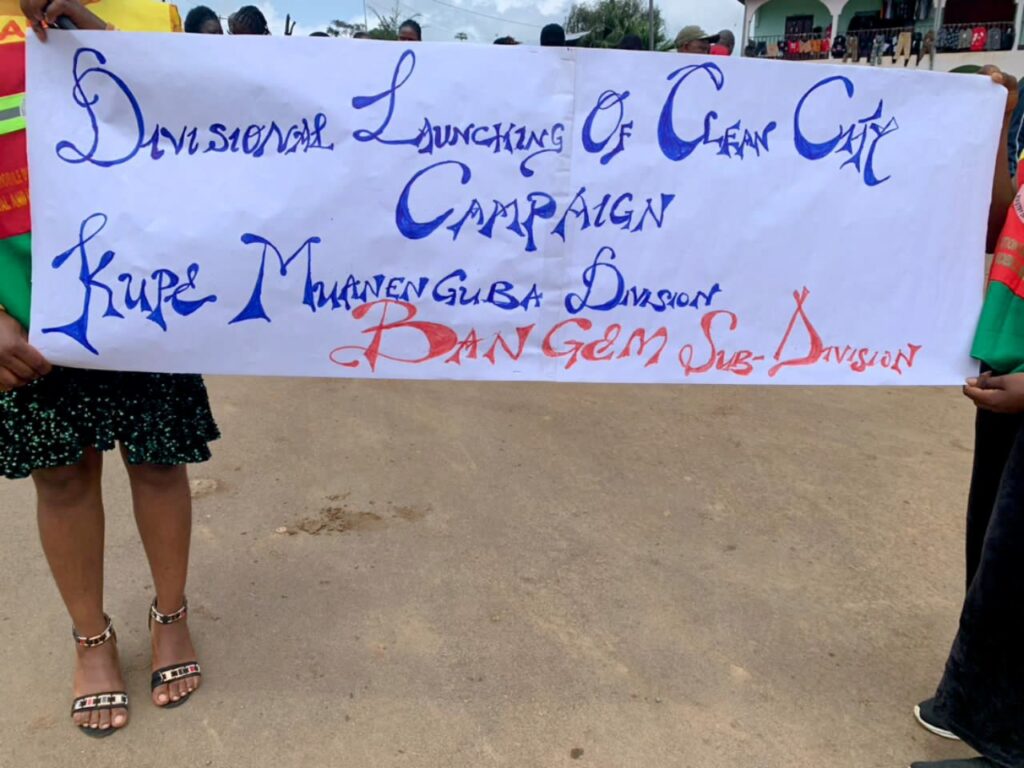 Divisional Launching Of Clean City
Campaign
Kupe Muanenguba Division
Bangem Sub-Division